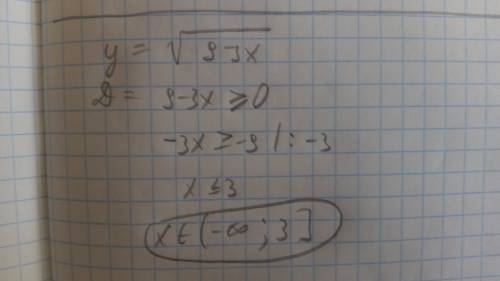 y = √9-3x
D = 9-3x ≥ 0
-3x ≥ -9 |: -3
x ≤ 3
x ∈ (-∞ ; 3]